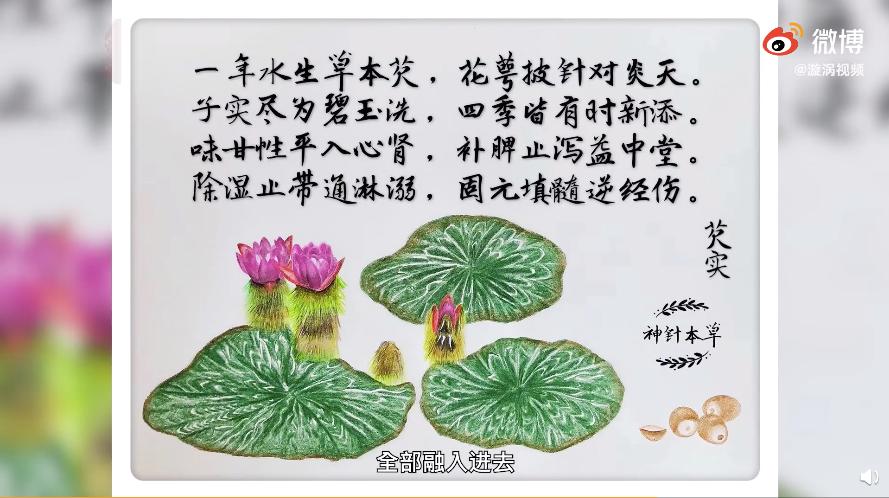 一年水生草本芡，花萼披针对炎天。
子实尽为碧玉洗，四季皆有时新添。
味甘性平入心肾，补脾止泻益中堂。
除湿止带通淋溺，固元填髓逆经伤。
芡实
神针本草
全部融入进去
微博
@漩涡视频